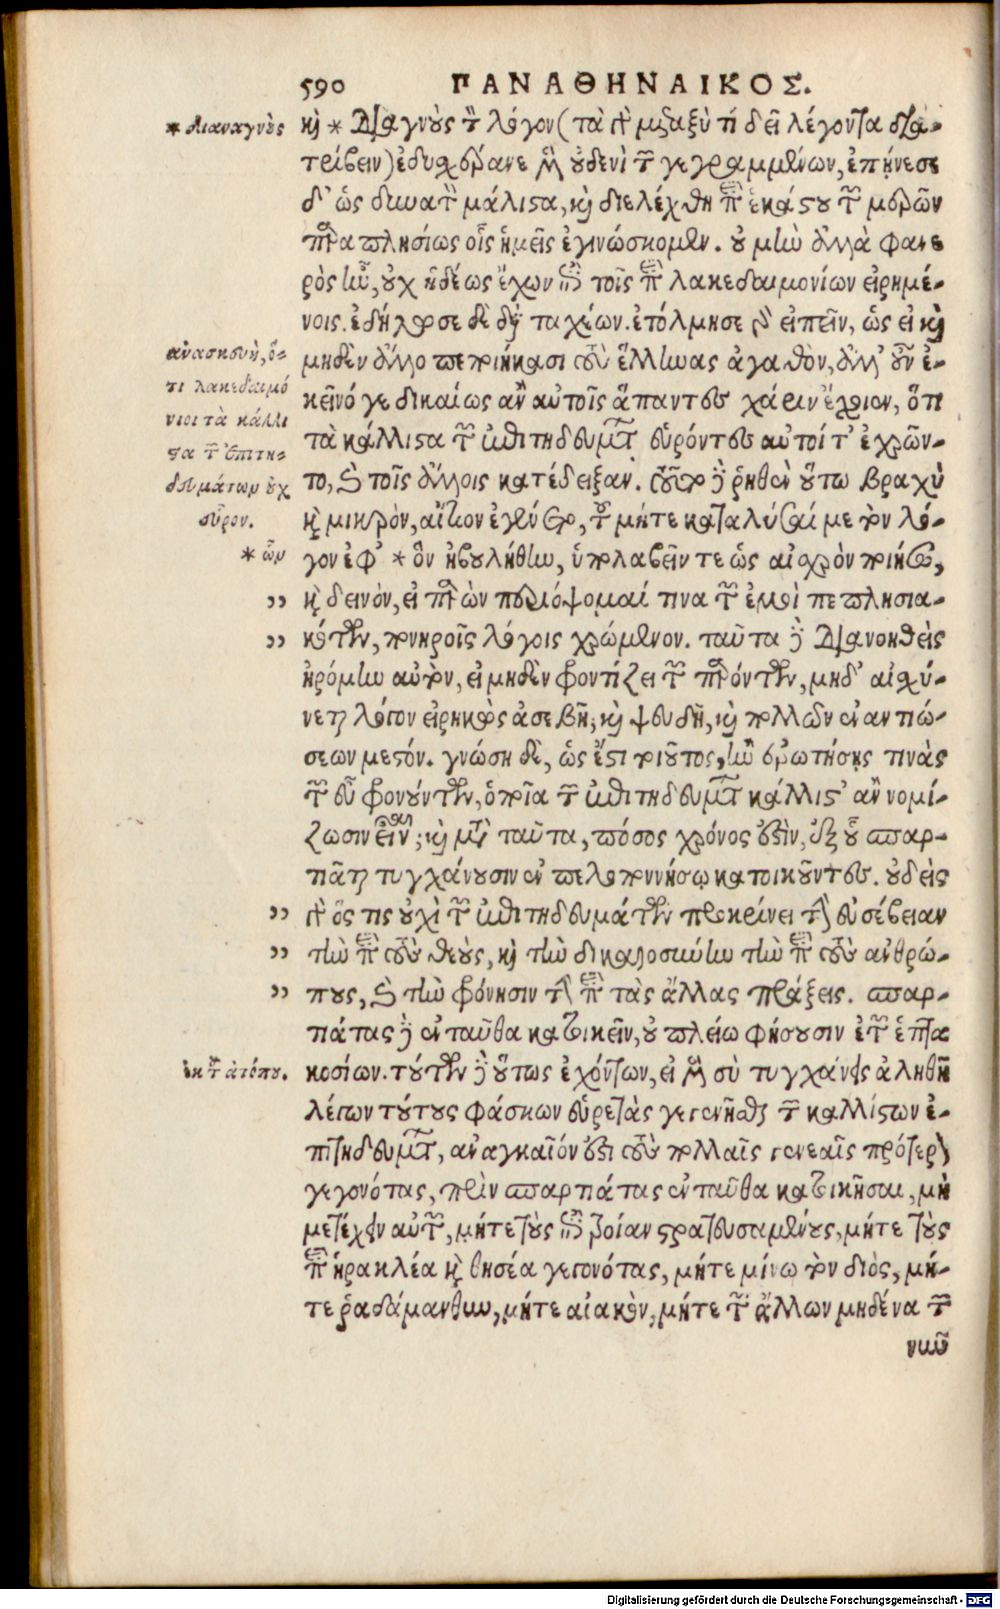 590 ΠΑΝΑΘΗΝΑΙΚΟΣ.
* διαναγνὸς
καὶ * διαγνοὺς τὸν λόγον (τὰ γὰρ μεταξὺ τί δεῖ λέγοντα δια-
τρίβειν) ἐδυσχέρανε μὲν οὐδενὶ τῶν γεγραμμένων, ἐπῄνεσε
δ' ὡς δυνατὸν μάλιστα, καὶ διελέχθη περὶ ἑκάστου τῶν μερῶν
παραπλησίως οἷς ἡμεῖς ἐγινώσκομεν. οὐ μὴν ἀλλὰ φανε
ρὸς ἦν, οὐχ ἡδέως ἔχων ἐπὶ τοῖς περὶ λακεδαιμονίων εἰρημέ-
νοις. ἐδήλωσε δὲ διὰ ταχέων. ἐτόλμησε γὰρ εἰπεῖν, ὡς εἰ καὶ
ἀνασκευὴ, ὅ-
τι λακεδαιμό
νιοι τὰ κάλλι
στα τῶν ἐπιτη-
δευμάτων οὐχ
εὗρον.
μηδὲν ἄλλο πεποιήκασι τοὺς ἕλληνας ἀγαθὸν, ἀλλ' οὖν ἐ-
κεῖνό γε δικαίως ἂν αὐτοῖς ἅπαντες χάριν ἔχοιεν, ὅτι
τὰ κάλλιστα τῶν ἐπιτηδευμάτων εὑρόντες αὐτοί τ' ἐχρῶν-
το, καὶ τοῖς ἄλλοις κατέδειξαν. τοῦτο δὲ ῥηθὲν οὕτω βραχὺ
καὶ μικρὸν, αἴτιον ἐγένετο, τοῦ μήτε καταλῦσαί με τὸν λό-
* ὧν
γον ἐφ' * ὃν ἠβουλήθην, ὑπολαβεῖν τε ὡς αἰσχρὸν ποιήσω,
,, καὶ δεινὸν, εἰ παρὼν περιόψομαί τινα τῶν ἐμοὶ πεπλησια-
,, κότων, πονηροῖς λόγοις χρώμενον. ταῦτα δὲ διανοηθεὶς
ἠρόμην αὐτὸν, εἰ μηδὲν φροντίζει τῶν παρόντων, μηδ' αἰσχύ-
νεται λόγον εἰρηκὼς ἀσεβῆ, καὶ ψευδῆ, καὶ πολλῶν ἐναντιώ-
σεων μεστόν. γνώσῃ δὲ, ὡς ἔστι τοιοῦτος, ἢν ἐρωτήσῃς τινὰς
τῶν εὖ φρονούντων, ὁποῖα τῶν ἐπιτηδευμάτων κάλλιστ' ἂν νομί-
ζωσιν εἶναι; καὶ μετὰ ταῦτα, πόσος χρόνος ἐστὶν, ἐξ οὗ σπαρ-
τιᾶται τυγχάνουσιν ἐν πελοποννήσῳ κατοικοῦντες. οὐδεὶς
,, γὰρ ὅς τις οὐχὶ τῶν ἐπιτηδευμάτων προκρίνει τὴν εὐσέβειαν
,, τὴν περὶ τοὺς θεοὺς, καὶ τὴν δικαιοσύνην τὴν περὶ τοὺς ἀνθρώ-
,, πους, καὶ τὴν φρόνησιν τὴν περὶ τὰς ἄλλας πράξεις. σπαρ-
τιάτας δὲ ἐνταῦθα κατοικεῖν, οὐ πλείω φήσουσιν ἐτῶν ἑπτα
ἐκ τοῦ ἀτόπου.
κοσίων. τούτων δὲ οὕτως ἐχόντων, εἰ μὲν σὺ τυγχάνεις ἀληθῆ
λέγων τούτους φάσκων εὑρετὰς γεγενῆσθαι τῶν καλλίστων ἐ-
πιτηδευμάτων, ἀναγκαῖόν ἐστι τοὺς πολλαῖς γενεαῖς πρότερον
γεγονότας, πρὶν σπαρτιάτας ἐνταῦθα κατοικῆσαι, μὴ
μετέχειν αὐτῶν, μήτε τοὺς ἐπὶ τροίαν στρατευσαμένους, μήτε τοὺς
περὶ ἡρακλέα καὶ θησέα γεγονότας, μήτε μίνω τὸν διὸς, μή-
τε ῥαδάμανθυν, μήτε αἰακὸν, μήτε τῶν ἄλλων μηδένα τῶν
νῦν